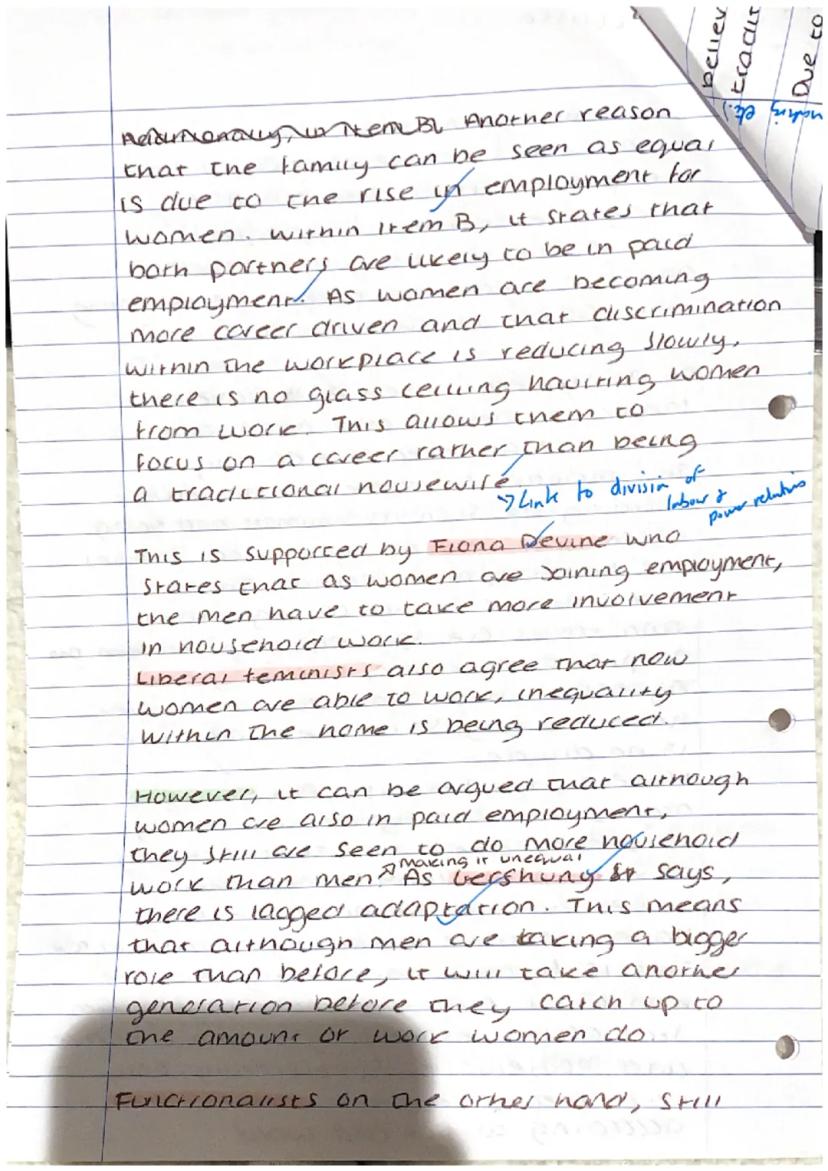 believ
tradit
Due to
Additionally, in Item B, Another reason
that the family can be seen as equal
is due to the rise in employment for
women. Within Item B, it states that
both partners are likely to be in paid
employment. As women are becoming
more career driven and that discrimination
within the workplace is reducing slowly,
there is no glass ceiling haulting women
from work. This allows them to
focus on a career rather than being
a traditional housewife.
→ Link to division of
labour &
power relations
This is supported by Fiona Devine who
states that as women are joining employment,
the men have to take more involvement
in household work.
Liberal feminists also agree that now
women are able to work, inequality
within the home is being reduced.
However, it can be argued that although
women are also in paid employment,
they still are seen to do more household
making it unequal
work than men. As Gershuny says,
there is lagged adaptation. This means
that although men are taking a bigger
role than before, it will take another
generation before they catch up to
the amount of work women do
Functionalists on the other hand, still